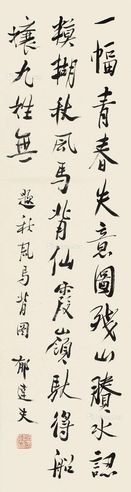 一幅青春失意圖殘山賸水認
模糊秋風馬背仙霞嶺馱得船
孃九姓無 題秋風馬背圖 郁達夫